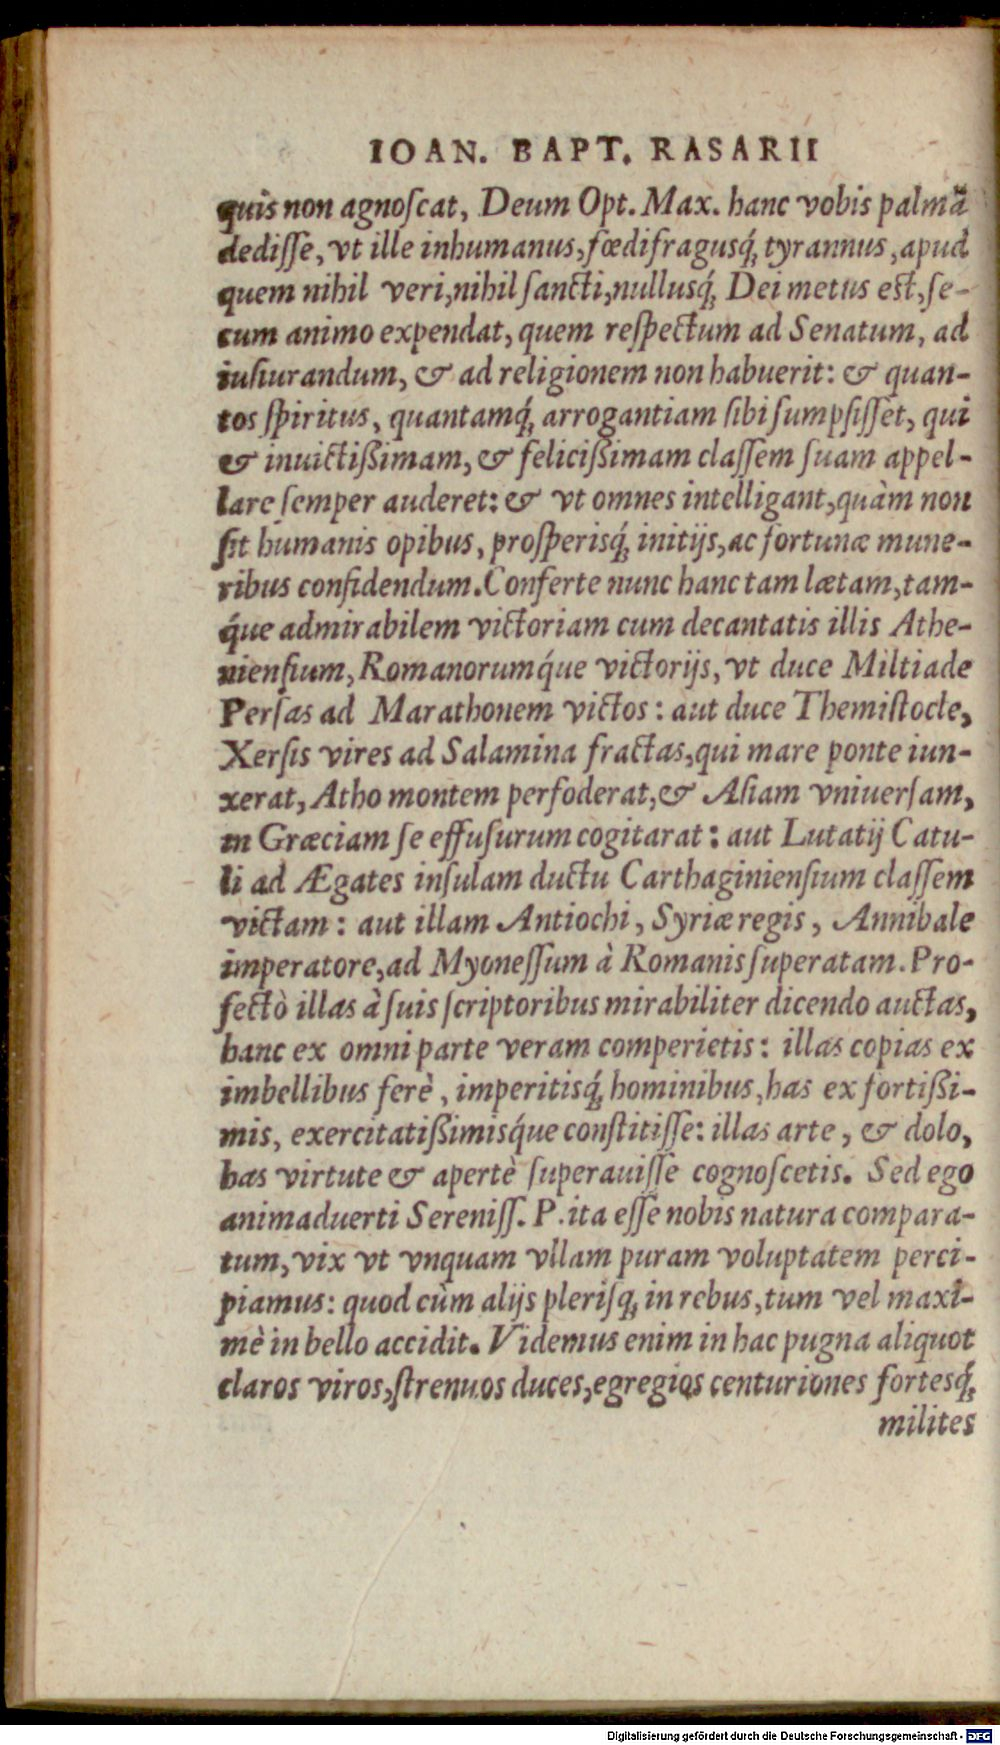 IOAN. BAPT. RASARII
quis non agnoſcat, Deum Opt. Max. hanc vobis palmã
dediſſe, vt ille inhumanus, fœdifragusq́; tyrannus, apud
quem nihil veri, nihil ſancti, nullusq́; Dei metus est, ſe-
cum animo expendat, quem reſpectum ad Senatum, ad
iuſiurandum, & ad religionem non habuerit: & quan-
tos ſpiritus, quantamq́; arrogantiam ſibi ſumpſiſſet, qui
& inuictißimam, & feliciſßimam claſſem ſuam appel-
lare ſemper auderet: & vt omnes intelligant, quàm non
ſit humanis opibus, proſperisq́; initijs, ac fortunæ mune-
ribus confidendum. Conferte nunc hanc tam lætam, tam-
q́ue admirabilem victoriam cum decantatis illis Athe-
nienſium, Romanorumq́ue victorijs, vt duce Miltiade
Perſas ad Marathonem victos: aut duce Themiſtocle,
Xerſis vires ad Salamina fractas, qui mare ponte iun-
xerat, Atho montem perfoderat, & Aſiam vniuerſam,
in Græciam ſe effuſurum cogitarat: aut Lutatij Catu-
li ad Ægates inſulam ductu Carthaginienſium claſſem
victam: aut illam Antiochi, Syriæ regis, Annibale
imperatore, ad Myoneſſum à Romanis ſuperatam. Pro-
fectò illas à ſuis ſcriptoribus mirabiliter dicendo auctas,
hanc ex omni parte veram comperietis: illas copias ex
imbellibus ferè, imperitisq́; hominibus, has ex fortißi-
mis, exercitatißimisq́ue conſtitiſſe: illas arte, & dolo,
has virtute & apertè ſuperauiſſe cognoſcetis. Sed ego
animaduerti Sereniſſ. P. ita eſſe nobis natura compara-
tum, vix vt vnquam vllam puram voluptatem perci-
piamus: quod cùm alijs pleriſq; in rebus, tum vel maxi-
mè in bello accidit. Videmus enim in hac pugna aliquot
claros viros, ſtrenuos duces, egregios centuriones fortesq́;
milites
Digitalisierung gefördert durch die Deutsche Forschungsgemeinschaft - DFG